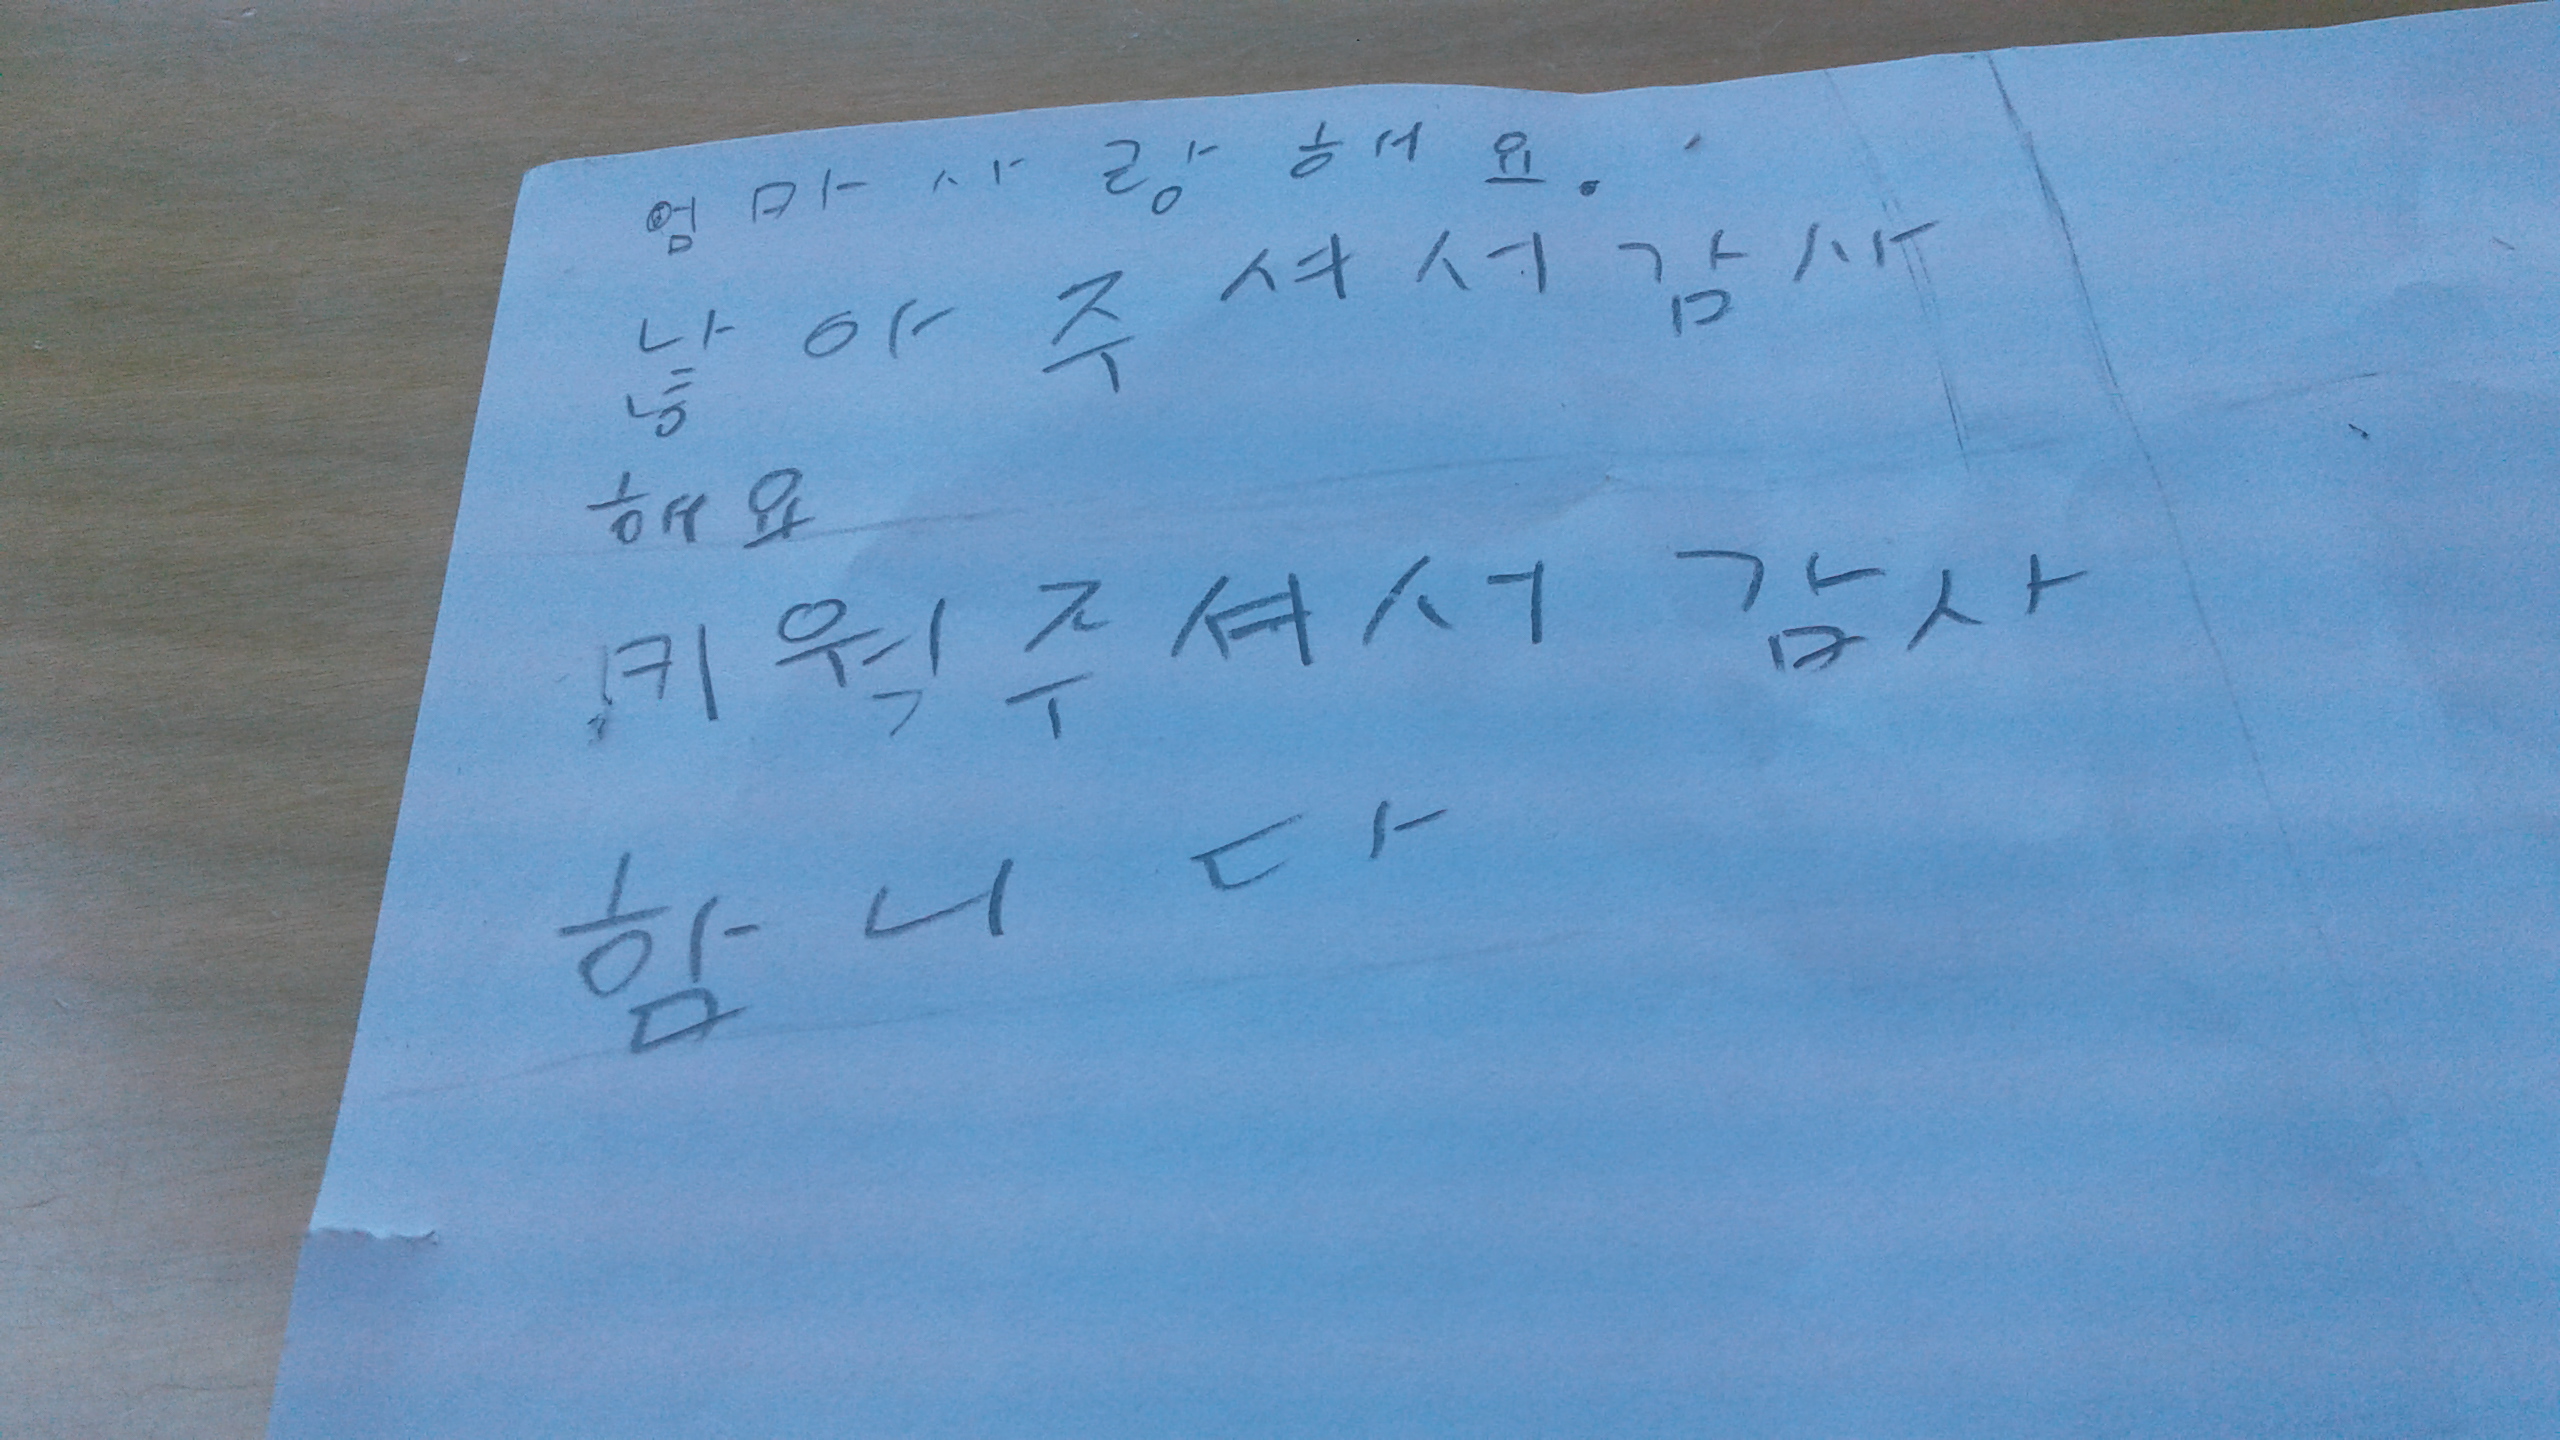 엄마사랑해요.
낳아주셔서감사
해요
키웍주셔서 감사
함니다